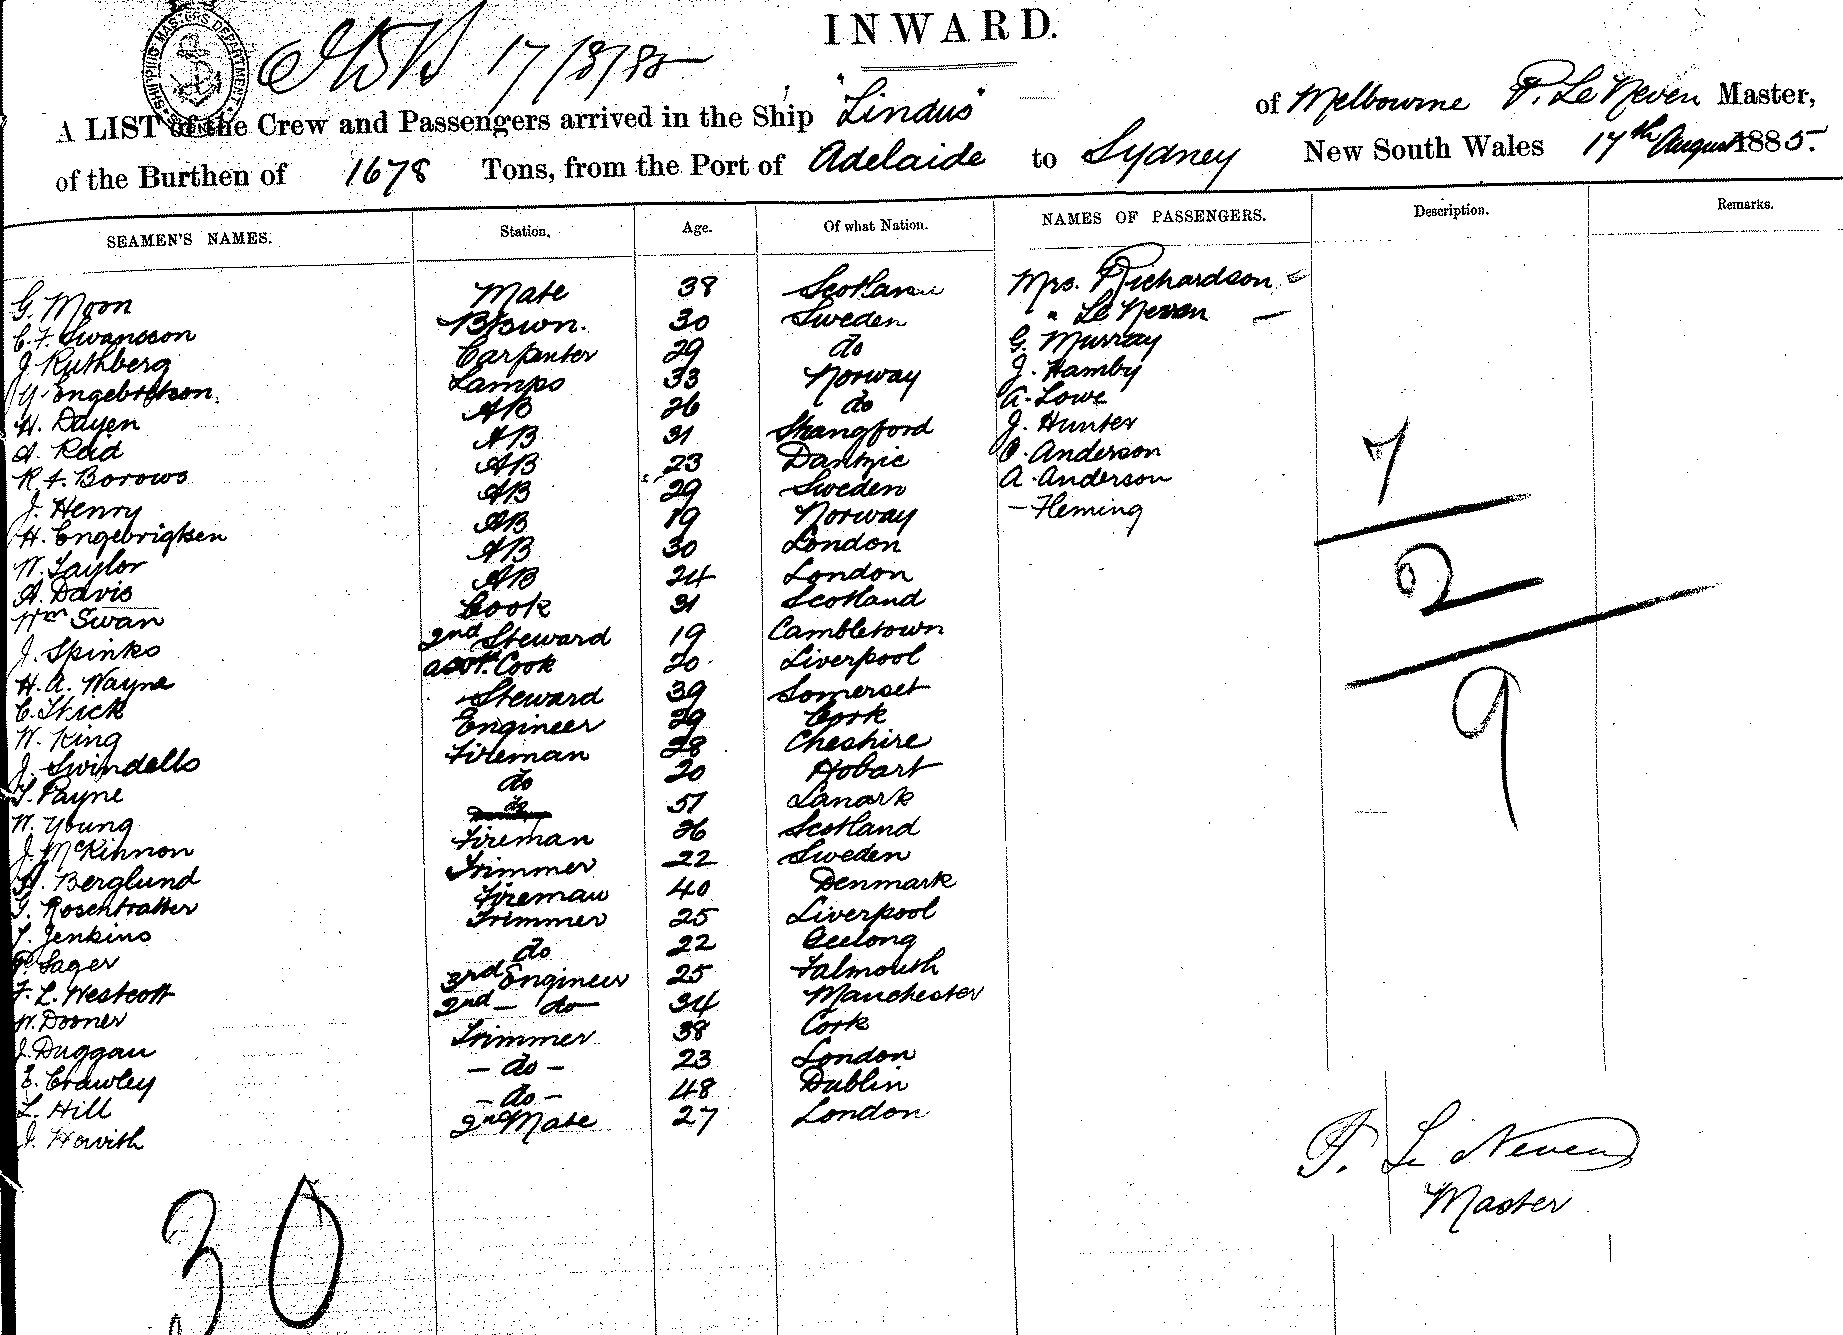 INWARD.
17/8/85
A LIST of the Crew and Passengers arrived in the Ship "Lindus" of Melbourne P. Le Neven Master,
of the Burthen of 1678 Tons, from the Port of Adelaide to Sydney New South Wales 17th August 1885.
SEAMEN'S NAMES. Station. Age. Of what Nation. NAMES OF PASSENGERS. Description. Remarks.
G. Moon Mate 38 Scotland Mrs. Richardson
C. F. Swansson B/swn. 30 Sweden " Le Neven
J. Ruthberg Carpenter 29 do G. Murray
Engebretson Lamps 33 Norway J. Hamby
H. Dayen AB 26 do A. Lowe
A. Reid AB 31 Strangford J. Hunter
R. A. Borows AB 23 Dantzic O. Anderson
J. Henry AB 29 Sweden A. Anderson
H. Engebrigtsen AB 19 Norway - Fleming
W. Taylor AB 30 London
A. Davis AB 24 London
Wm Swan Cook 31 Scotland
J. Spinks 2nd Steward 19 Cambletown
H. A. Wayne asst. Cook 20 Liverpool
C. Strick Steward 39 Somerset
W. King Engineer 29 Cork
J. Swindells Fireman 28 Cheshire
T. Payne do 20 Hobart
W. Young do 51 Lanark
J. McKinnon Fireman 26 Scotland
A. Berglund Trimmer 22 Sweden
Rosentratter Fireman 40 Denmark
T. Jenkins Trimmer 25 Liverpool
P. Sager do 22 Geelong
F. L. Westcott 3rd Engineer 25 Falmouth
W. Dooner 2nd - do 34 Manchester
J. Duggan Trimmer 38 Cork
E. Crawley - do - 23 London
L. Hill - do - 48 Dublin
J. Howith 2nd Mate 27 London
7
2
9
P. Le Neven
Master
30